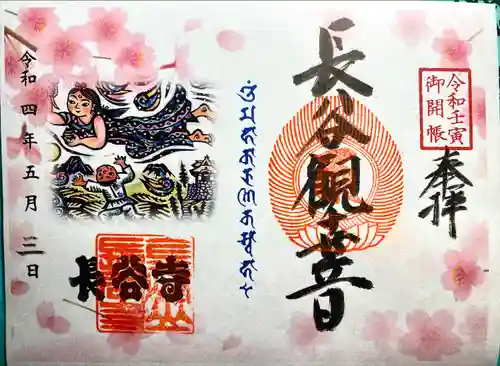 奉拝
令和壬寅
御開帳
長谷観世音
令和四年五月三日
長谷寺